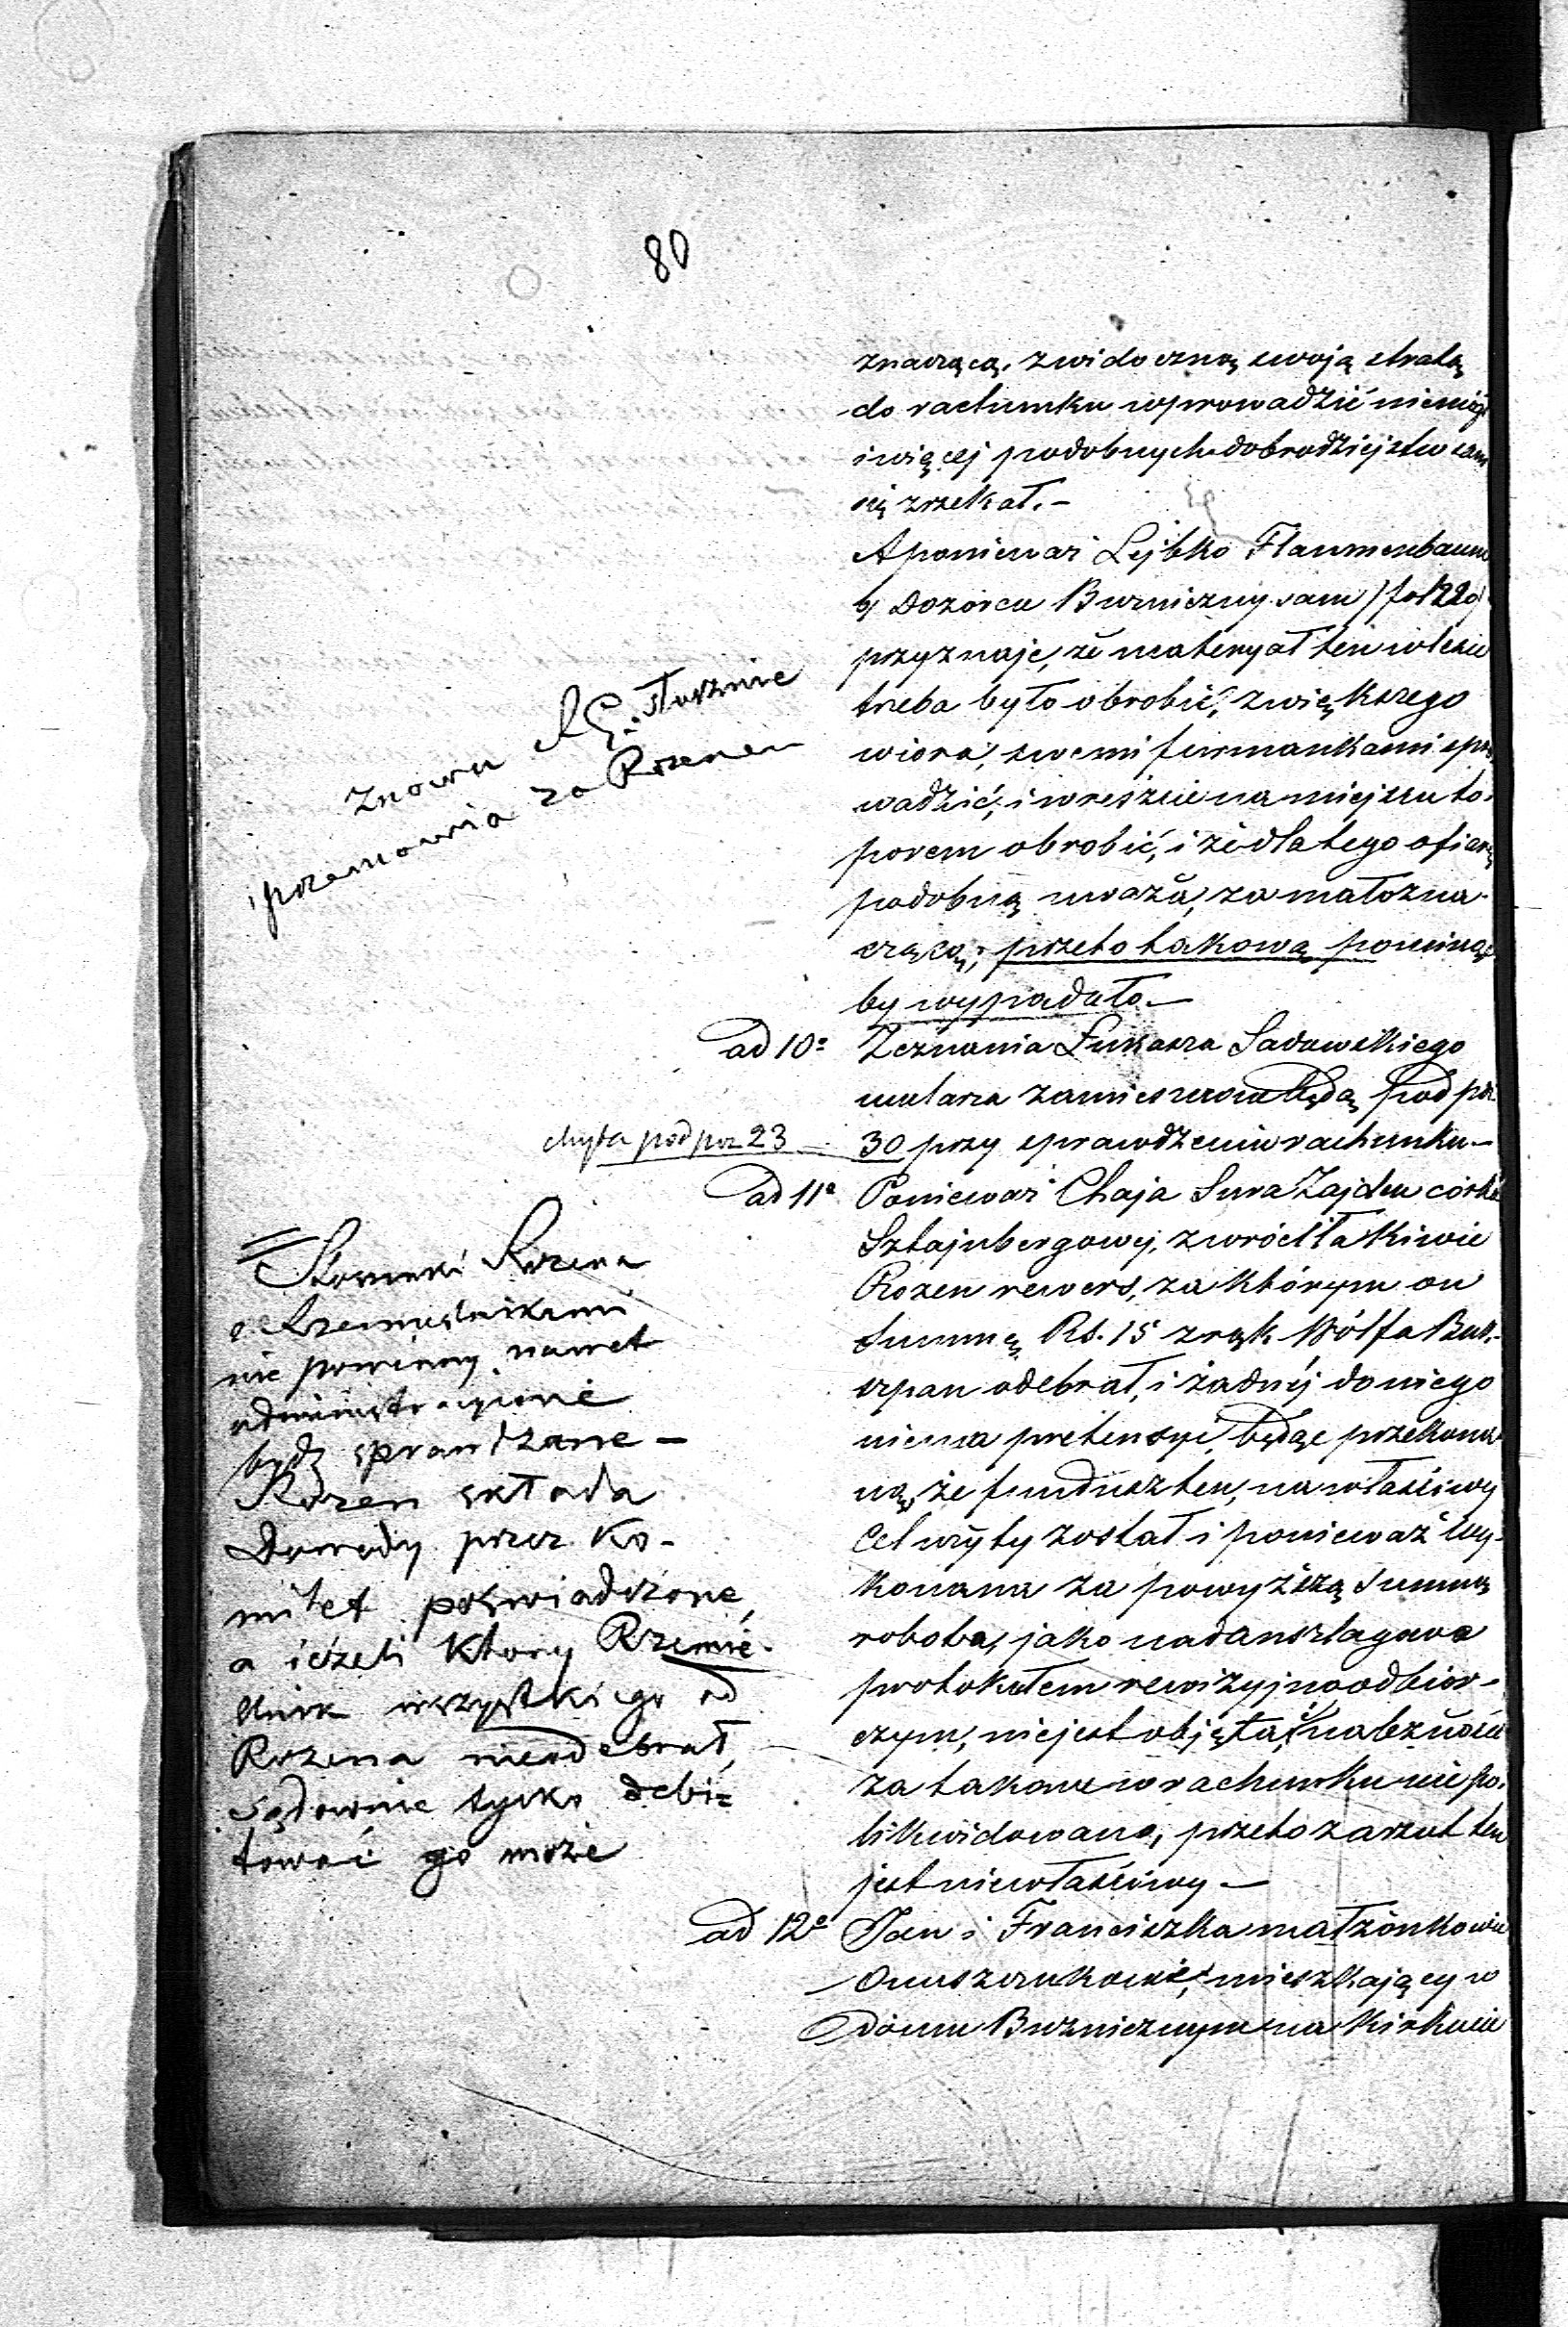 80
znaczącą, z widoczną swoją stratą
do rachunku wprowadzić niemógł
i więcej podobnych dobrodziejstw sam
się zrzekał. –
A ponieważ Lejbko Flaumenbaum
b. Dozorca Bużniczny sam
przyznaje, że materyał ten w lesie
trzeba było obrobić, z większego
wióra, swemi furmankami spro
wadzić, i wreszcie na miejscu to-
porem obrobić, i że dla tego ofiarę
podobną uważa, za małozna-
czącą; przeto takową pominąć
by wypadało. –
Znowu A. G. słusznie
przemawia za Rozenem
ad 10º Zeznania Łukasza Sadowskiego
mularza zamieszczone będą pod poz.
30 przy sprawdzeniu rachunku –
chyba pod poz 23
ad 11º Ponieważ Chaja Sura Zajden córka
Sztajnbergowej, zwróciła Kiwie
Rozen rewers, za którym on
Summę Rs. 15 z rąk Wólfa Buk-
szpan odebrał, i żadnéj do niego
niema pretensyi, będąc przekona-
ną, że fundusz ten, na właściwy
cel użyty został i ponieważ wy-
konana za powyższą summę
robota, jako nadanszlagowa
protokółem rewizyjno odbior-
czym, niejest objęta, i należność
za takowe w rachunku nie po-
likwidowana, przeto zarzut ten
jest niewłaściwy –
Stosunki Rozena
z Rzemieślnikami
nie powinny nawet
administracyinie
bydź sprawdzane –
Rozen składa
Dowody przez Ko-
mitet poświadczone,
a ieżeli który Rzemie-
ślnik wszystkiego od
Rozena nieodebrał,
Sądownie tylko debi-
tować go może
ad 12º Jan i Franciszka małżonkowie
mieszkający w
Domu Bużnicznym na Kirkucie